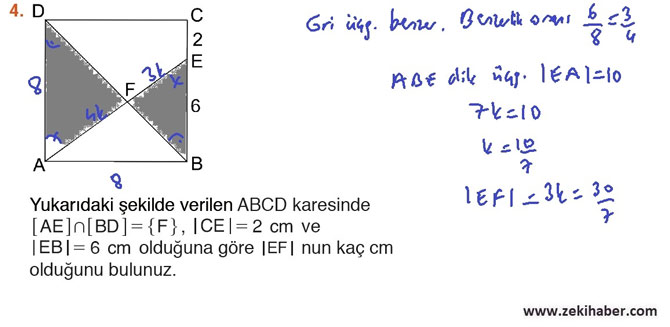 4.
D
C
2
E
3k
x
8
F
6
4k
x
A
B
8
Yukarıdaki şekilde verilen ABCD karesinde
[AE]∩[BD]={F}, |CE|=2 cm ve
|EB|=6 cm olduğuna göre |EF| nun kaç cm
olduğunu bulunuz.
Gri üçg. benzer. Benzerlik oranı 6/8=3/4
ABE dik üçg. |EA|=10
7k=10
k=10/7
|EF|=3k=30/7
www.zekihaber.com